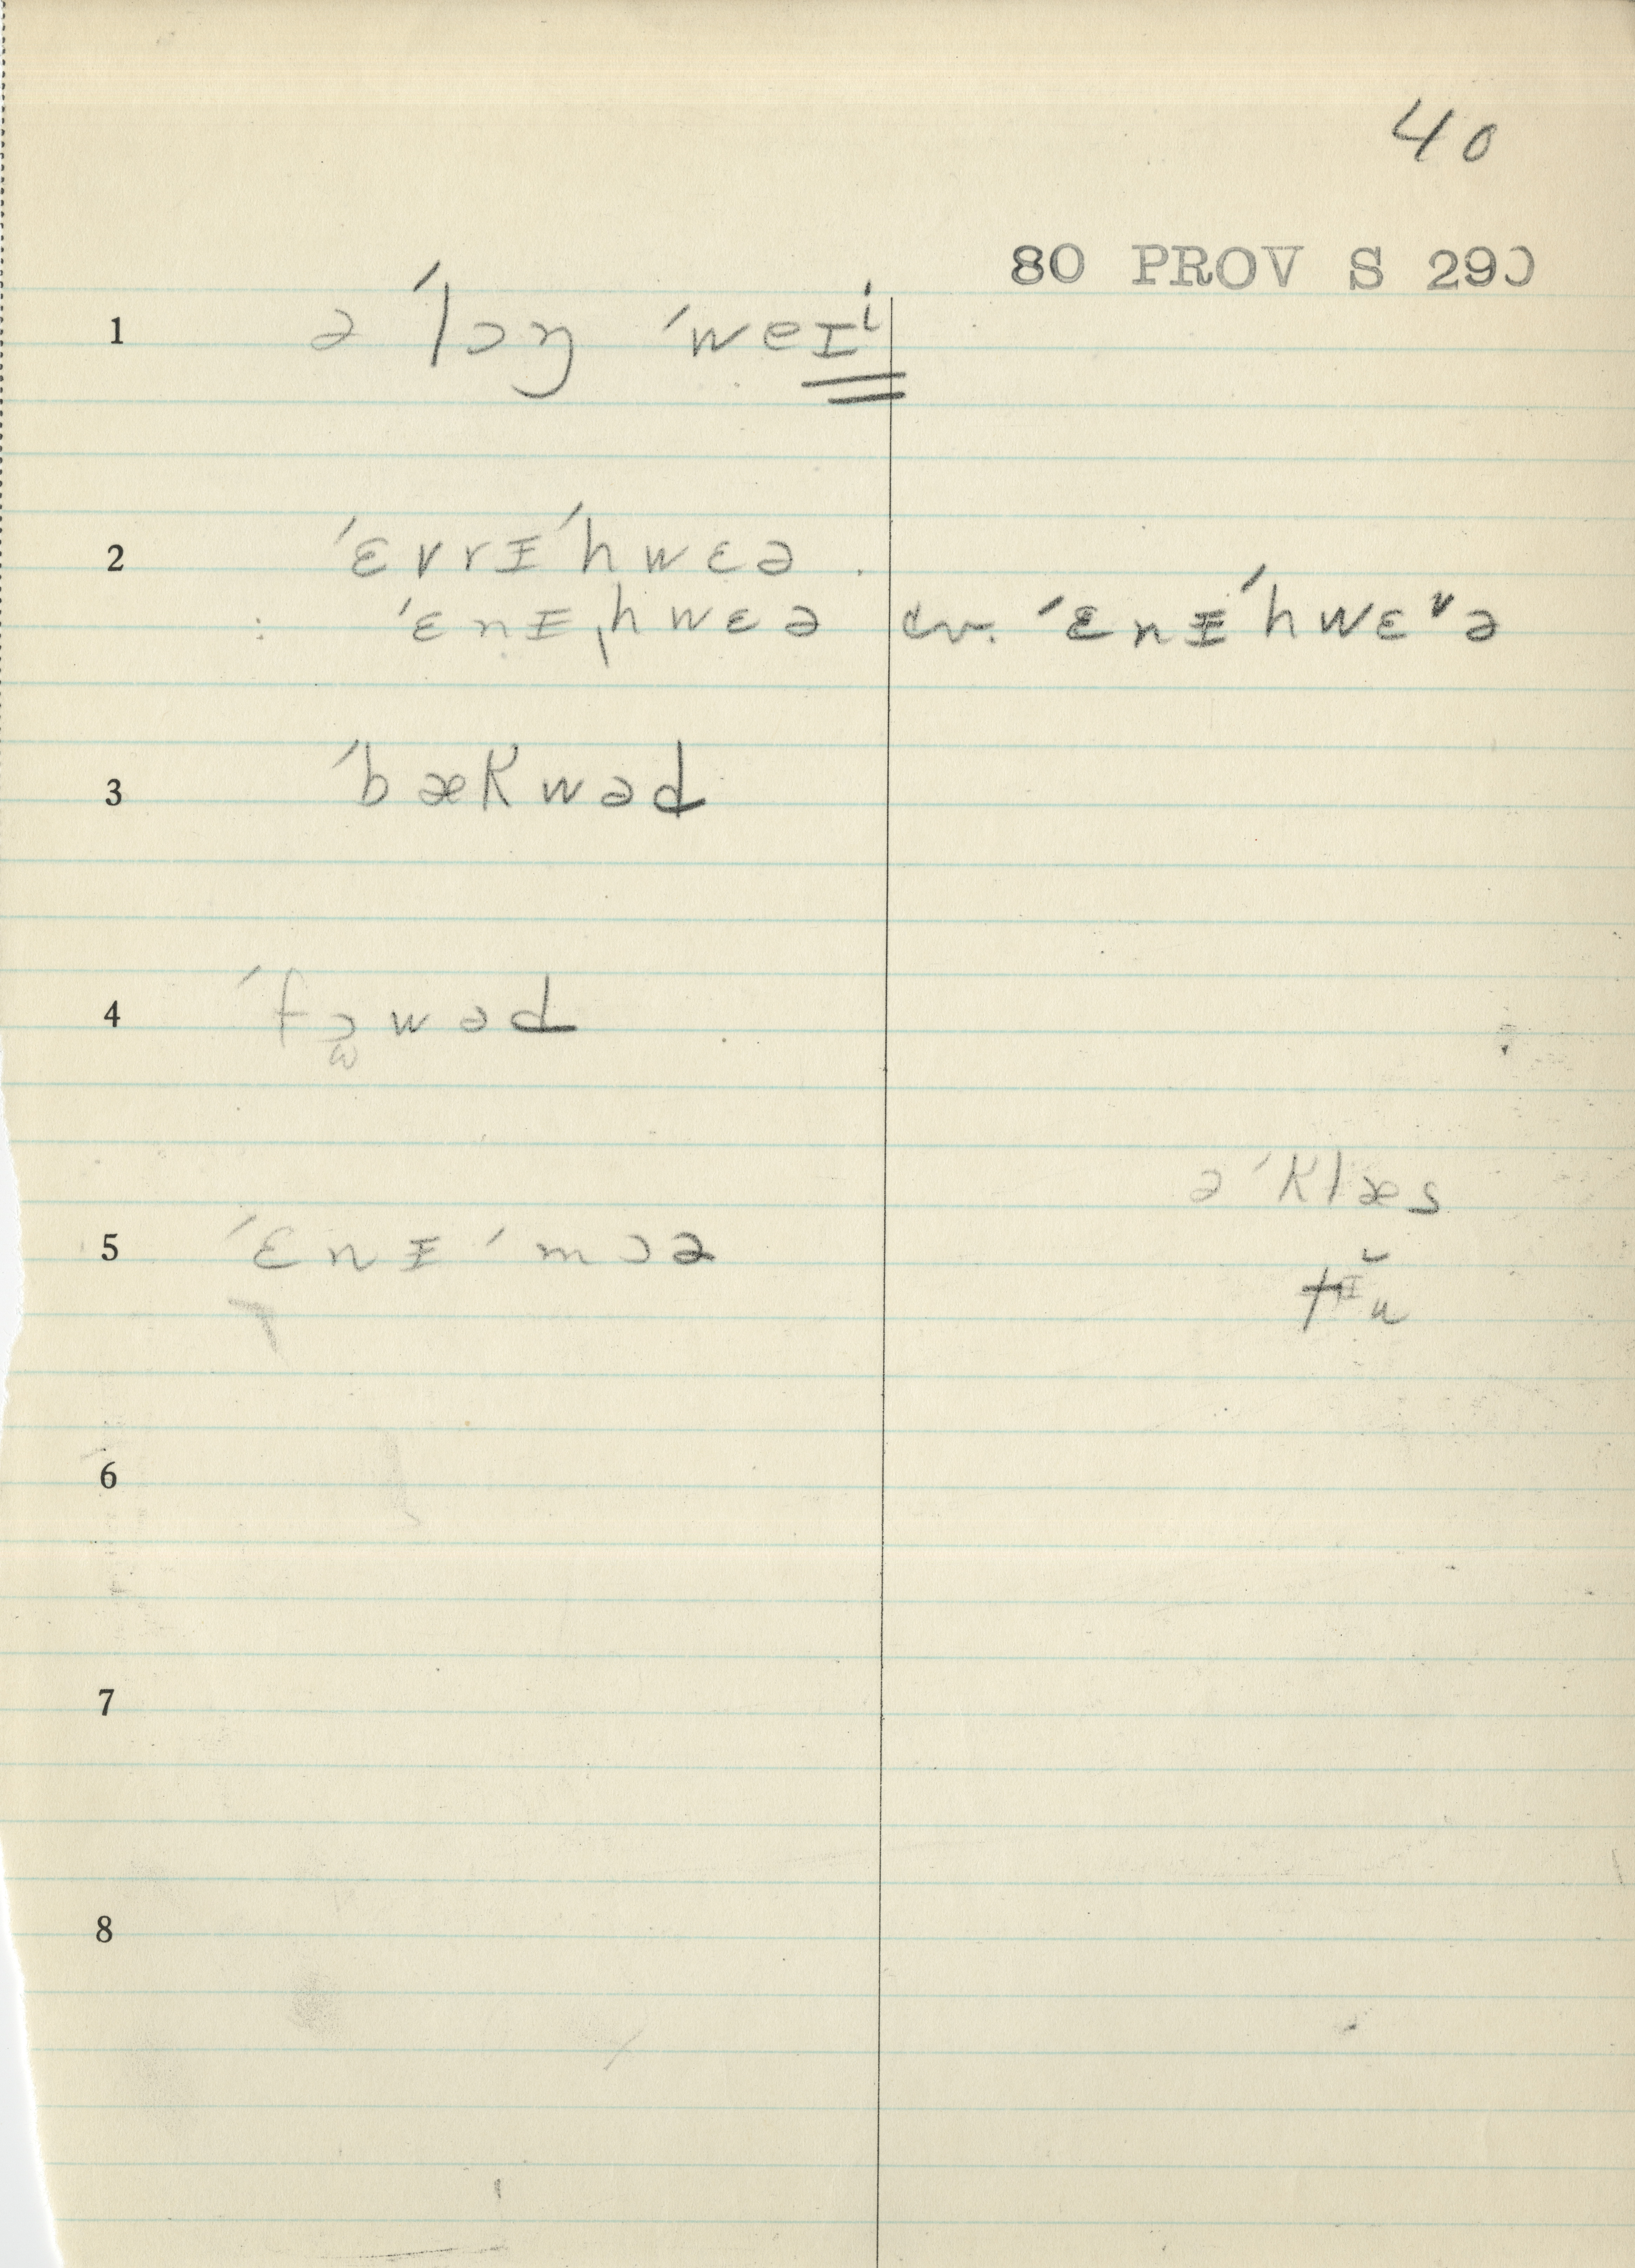 40
80 PROV S 290
1 ə ˈlɔŋ ˈweɪⁱ
2 ˈɛvrɪˈhwɛə .
: ˈɛnɪˌhwɛə cv. ˈɛnɪˈhwɛᵛə
3 ˈbækwəd
4 ˈfɔwəd
ə ˈklæs
5 ˈɛnɪ ˈmɔə